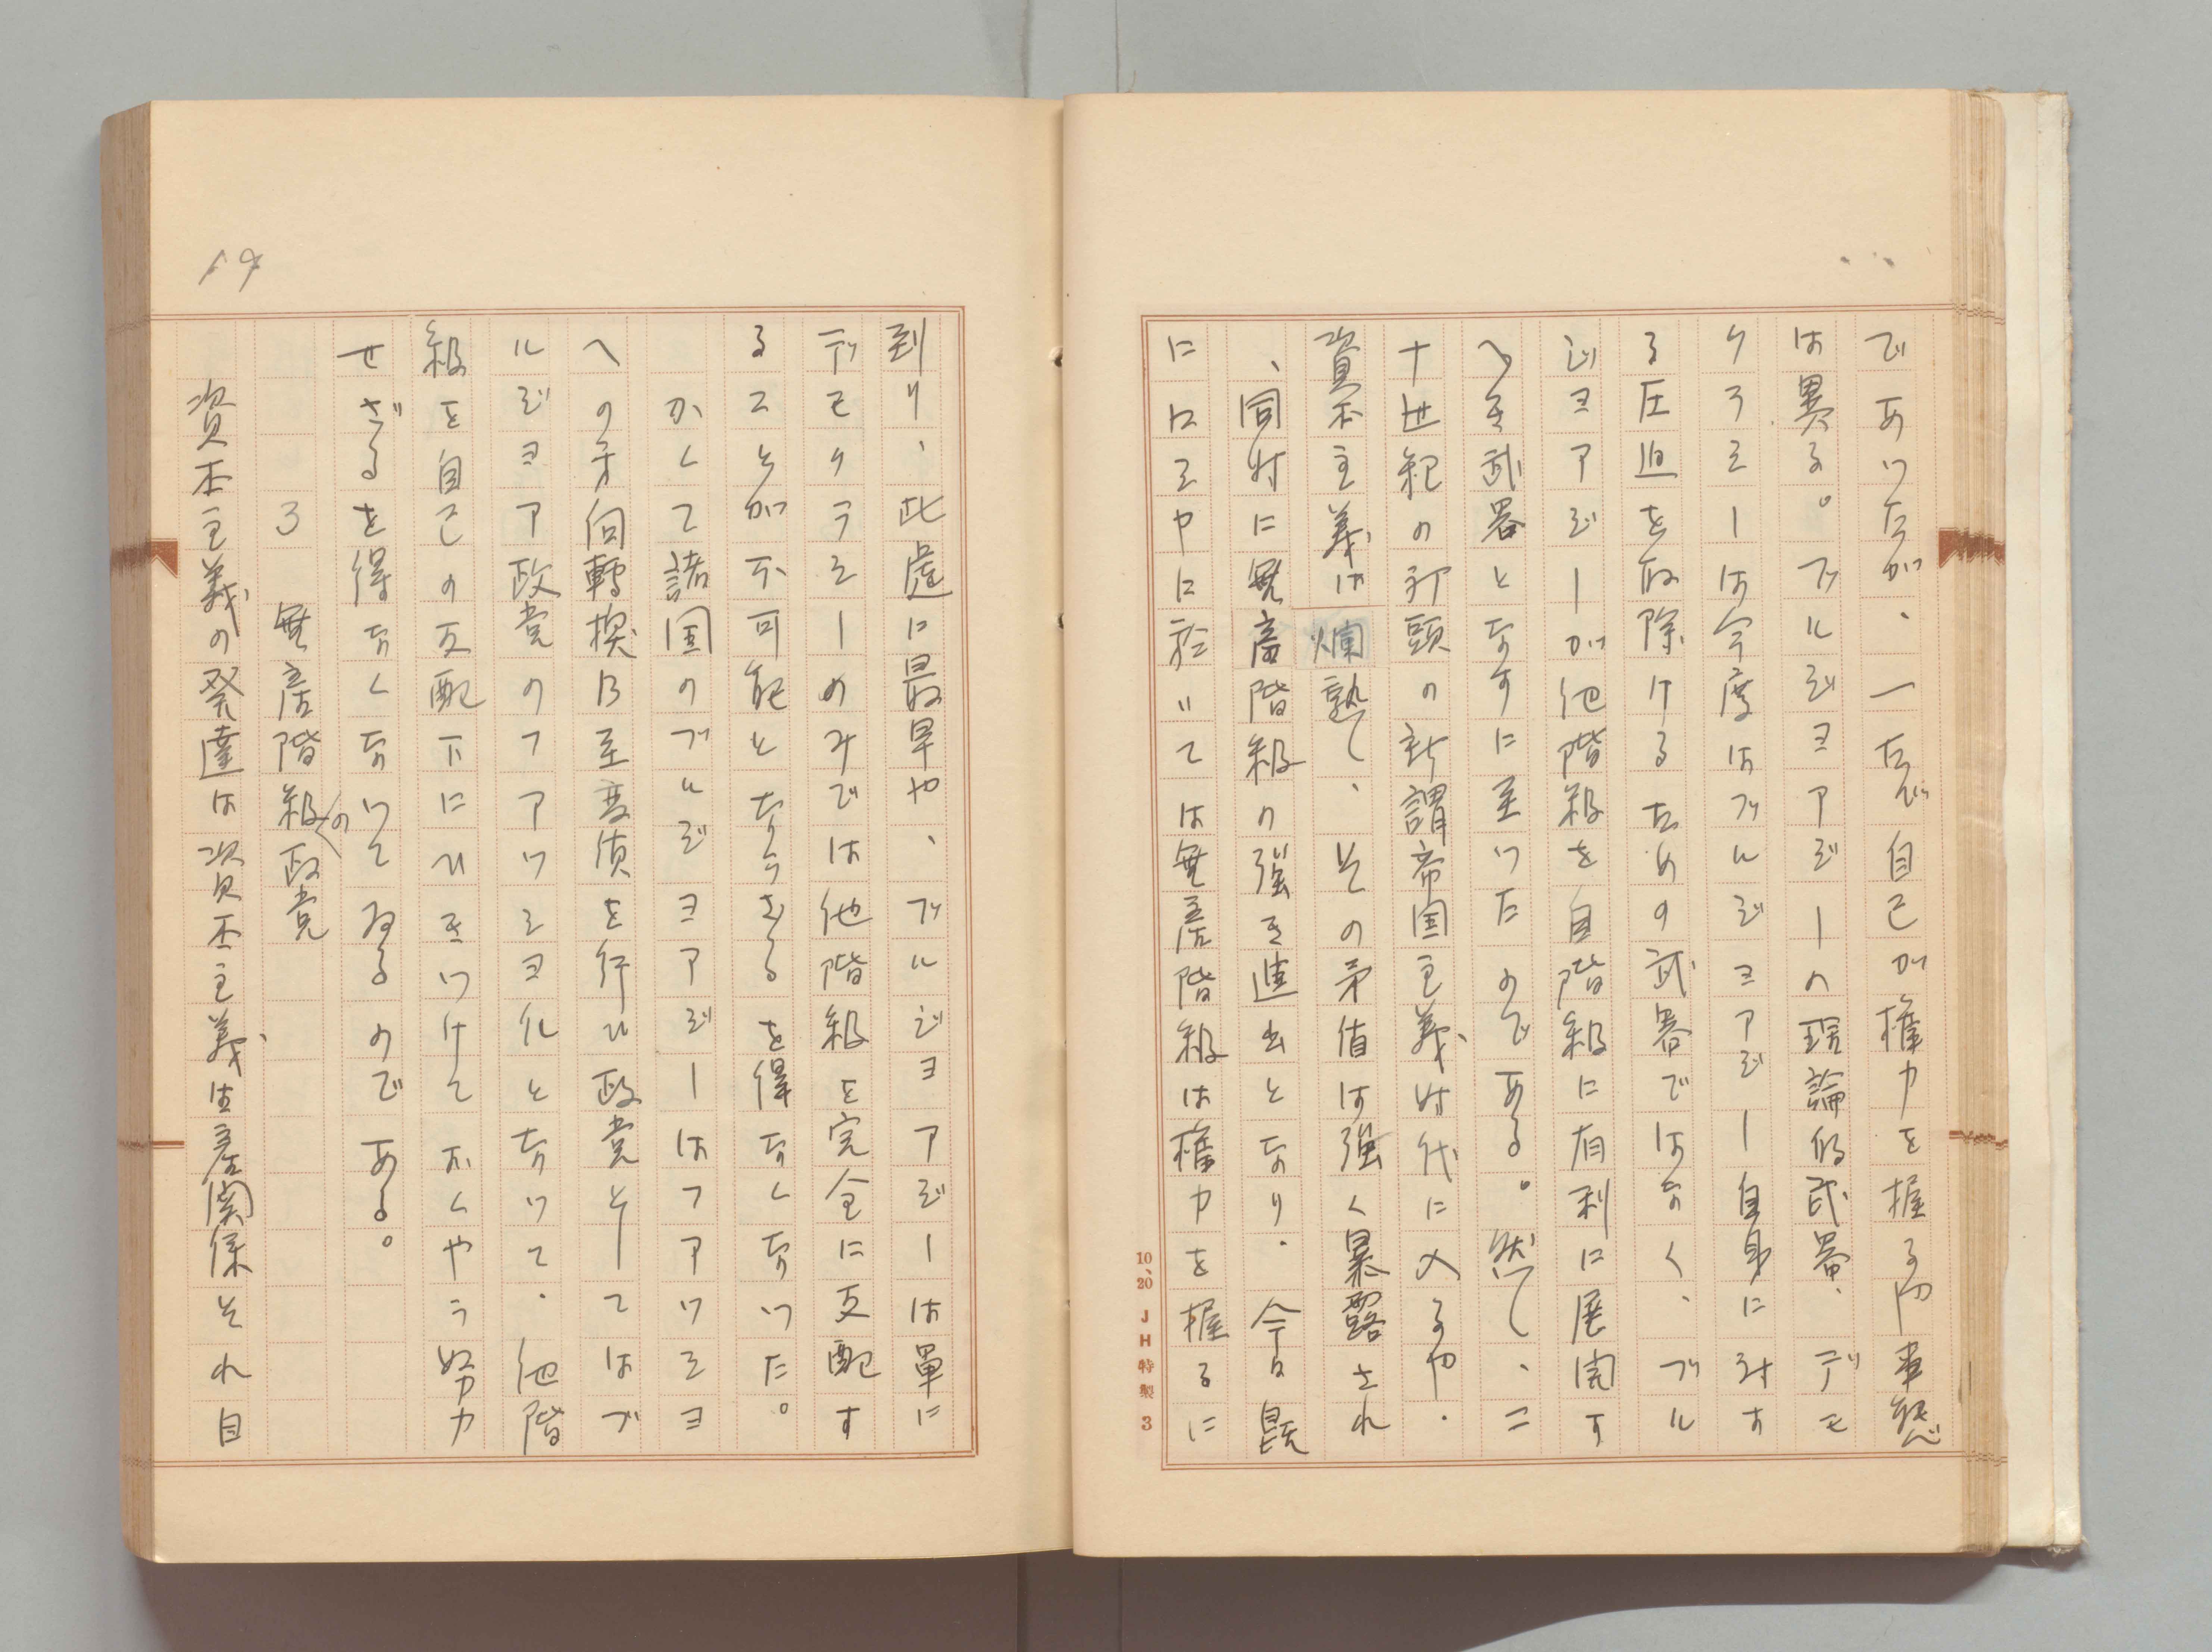 であつたが、一たび自己が権力を握るや事態
は異る。ブルジヨアジーの理論的武器、デモ
クラシーは今度はブルジヨアジー自身に対す
る圧迫を取除けるための武器ではなく、ブル
ジヨアジーが他階級を自階級に有利に展開す
べき武器となすに至つたのである。然し、二
十世紀の初頭の所謂帝国主義時代に入るや、
資本主義は爛熟し、その矛盾は強く暴露され
、同時に無産階級の強き進出となり、今日既
にロシヤに於いては無産階級は権力を握るに
10、20 JH特製 3
19
到り、此處に最早や、ブルジヨアジーは単に
デモクラシーのみでは他階級を完全に支配す
ることが不可能とならざるを得なくなつた。
かくて諸国のブルジヨアジーはフアツシヨ
への方向轉換乃至変質を行ひ政党としてはブ
ルジヨア政党のフアツシヨ化となつて、他階
級を自己の支配下にひきつけておくやう努力
せざるを得なくなつてゐるのである。
3 無産階級の政党
資本主義の発達は資本主義生産関係それ自